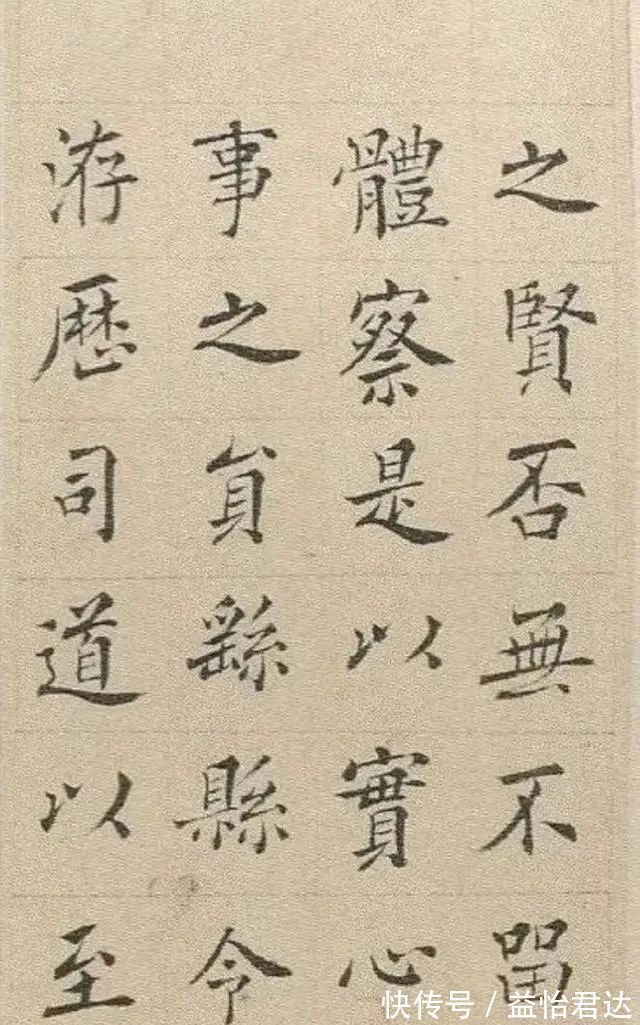 之賢否無不畱
體察是以實心
事之員繇縣令
洊歷司道以至
快传号／益怡君达